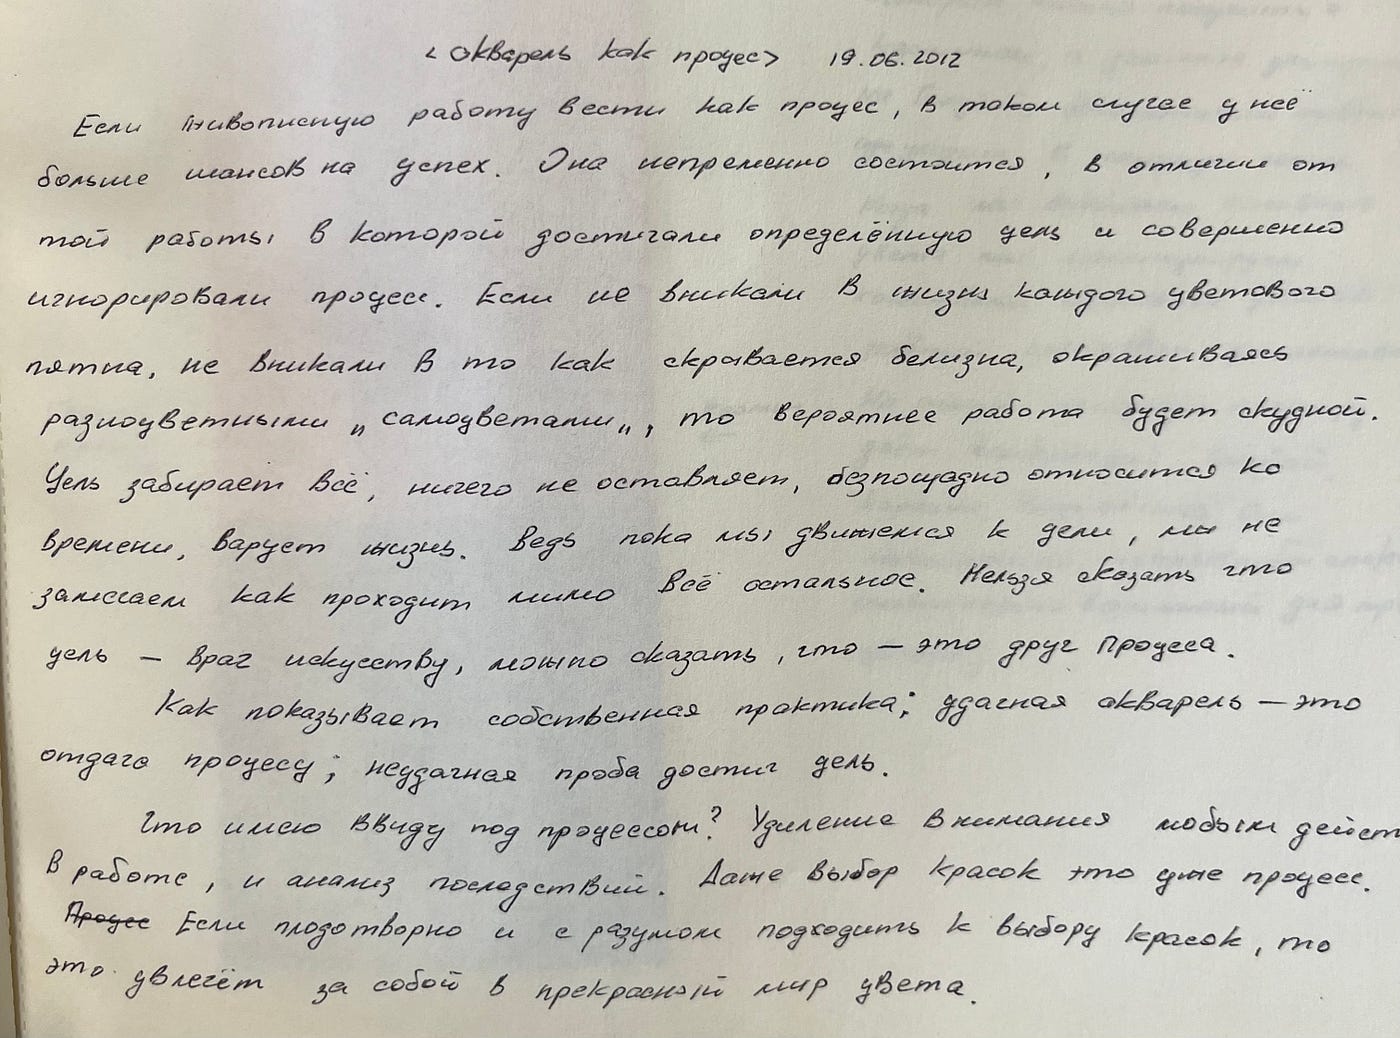 <Акварель как процес> 19.06.2012
Если живописную работу вести как процес, в таком случае у неё
больше шансов на успех. Она непременно состоится, в отличии от
той работы в которой достигали определённую цель и совершенно
игнорировали процесс. Если не вникали в жизнь каждого цветового
пятна, не вникали в то как скрывается белизна, окрашиваясь
разноцветными „самоцветами„, то вероятнее работа будет скудной.
Цель забирает всё, ничего не оставляет, безпощадно относится ко
времени, варует жизнь. Ведь пока мы движемся к цели, мы не
замечаем как проходит мимо всё остальное. Нельзя сказать что
цель – враг искусству, можно сказать, что – это друг процеса.
Как показывает собственная практика; удачная акварель – это
отдача процесу; неудачная проба достич цель.
Что имею ввиду под процессом? Уделение внимания любым дейст
в работе, и анализ последствий. Даже выбор красок это уже процесс.
Процес Если плодотворно и с разумом подходить к выбору красок, то
это увлечёт за собой в прекрасный мир цвета.